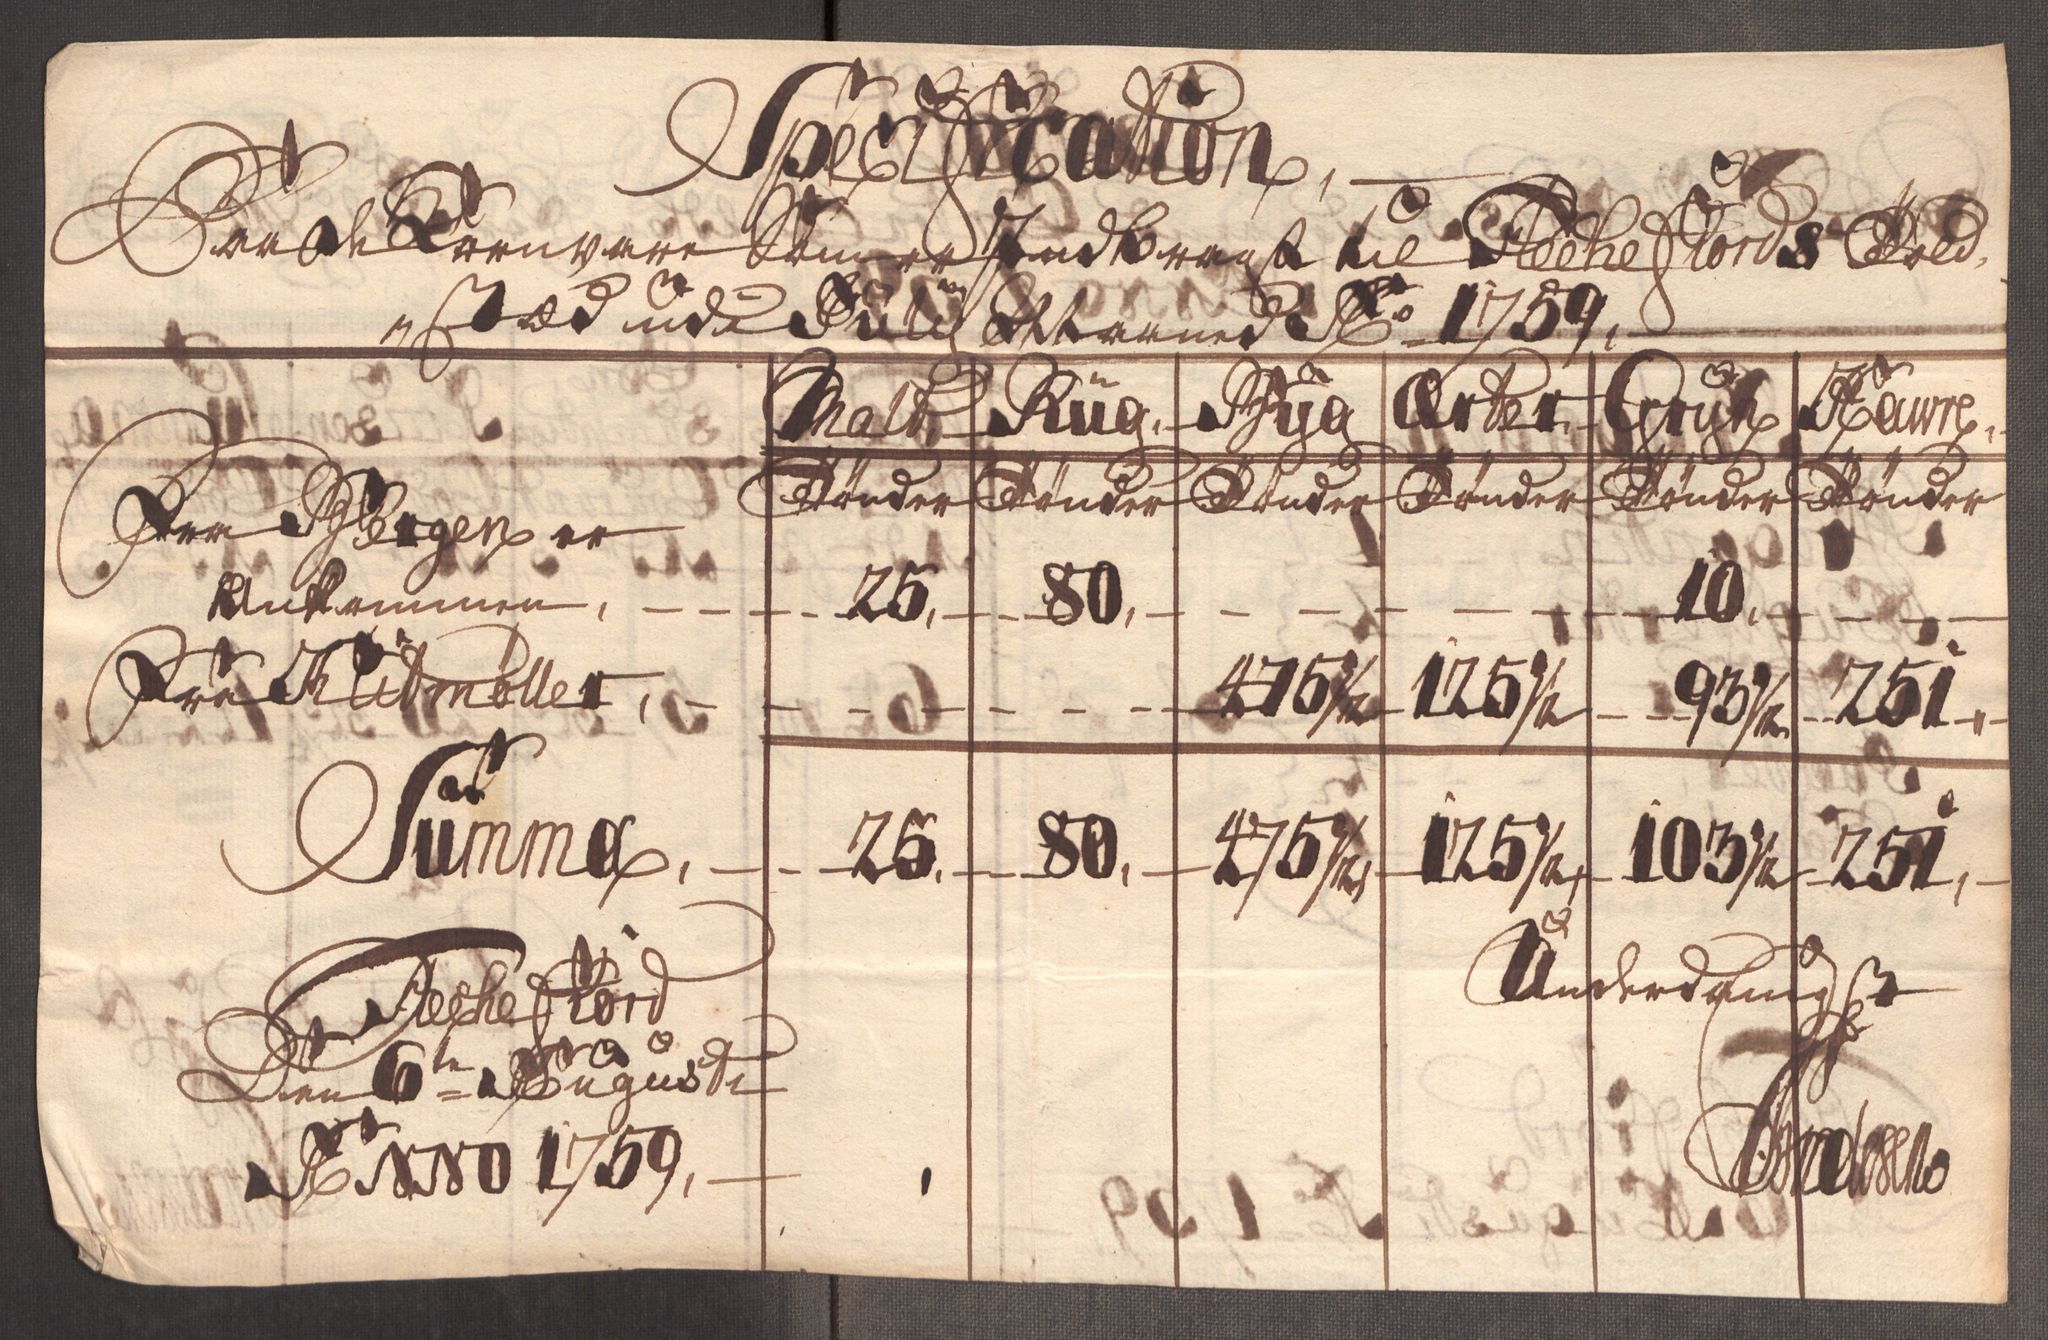 Specification,
Paa de Kornvare Som er Indbragt til Flechefiords Told,
Stæd udi Julij Maaned Ao 1759,
Malt, Rüg, Bÿg Erter, Grÿn Haure,
Tønder Tønder Tønder Tønder Tønder Tønder
Fra Bergen er
Ankommen, 25, 80, 10,
Fra Klitmøller, 475 1/2 125 1/2 93 1/2 251,
Summa, 25, 80, 475 1/2, 125 1/2, 103 1/2 251,
Flechefiord
Den 6te Augusti
ANNO 1759,
Underdanigst